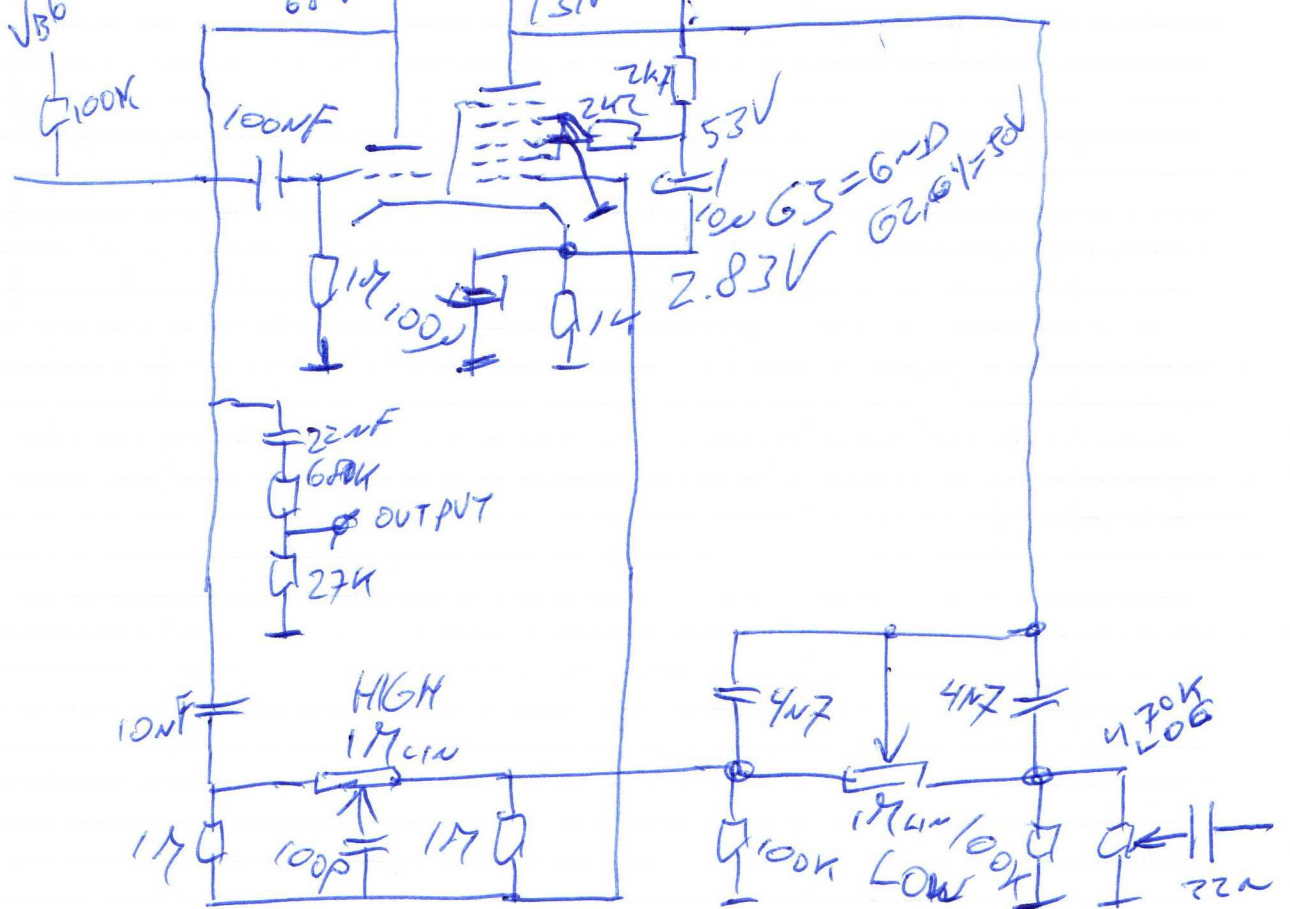 VB6
100K
100NF
2K7
2K2
53V
10u
G3=GND
G2,G4=50V
2.83V
1M
100u
1K
22NF
680K
OUTPUT
27K
10NF
HIGH
1M LIN
1M
100p
1M
4N7
4N7
470K
LOG
1M LIN
100K
LOW
100K
22n